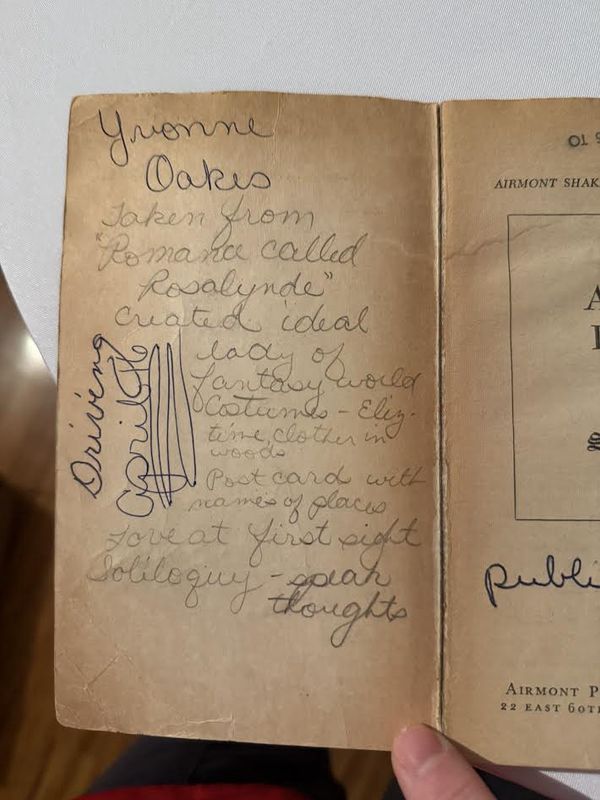 Yvonne
Oakes
Taken from
"Romance called
Rosalynde"
Created ideal
lady of
fantasy world
Costumes - Eliz.
time, clothes in
woods
Post card with
names of places
Love at first sight
Soliloquy - speak
thoughts
Driving
April
TO
AIRMONT SHAK
A
L
S
publi
AIRMONT P
22 EAST 60T